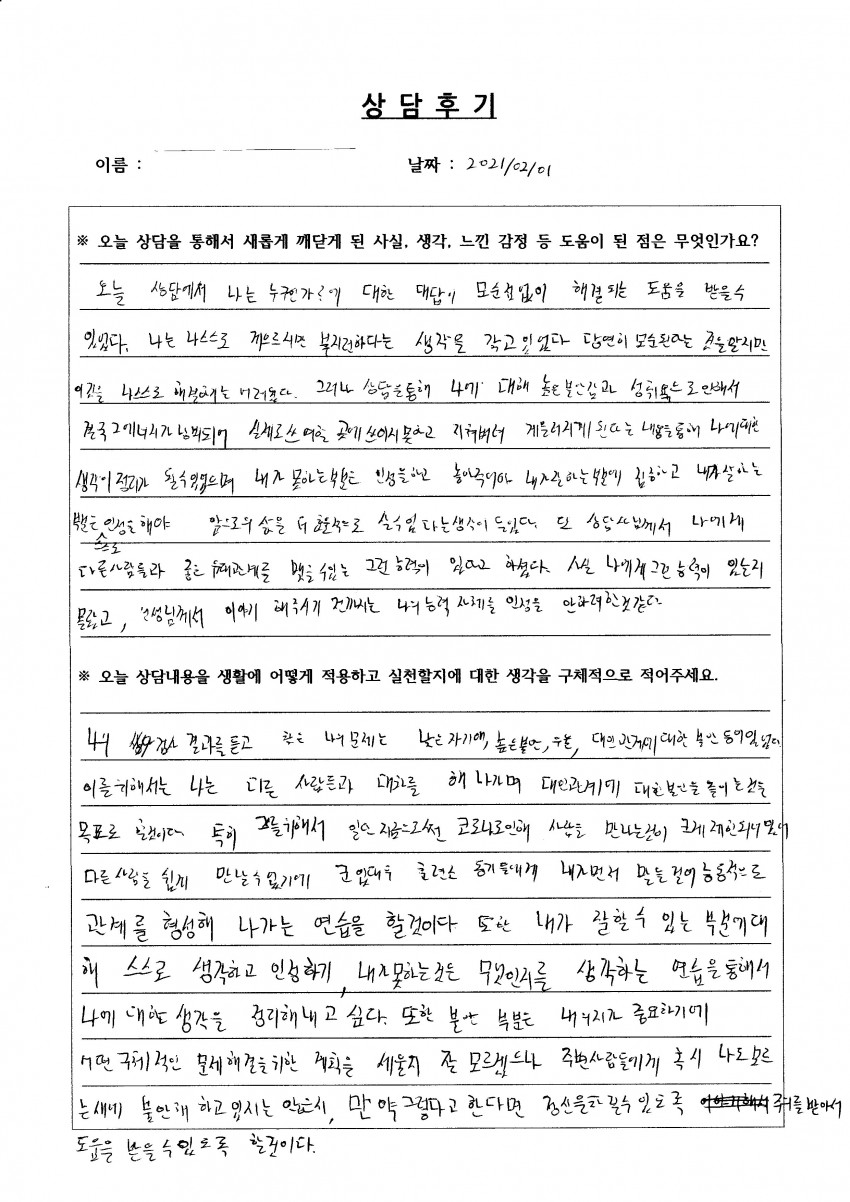 상 담 후 기
이름 :
날짜 : 2021/02/01
※ 오늘 상담을 통해서 새롭게 깨닫게 된 사실, 생각, 느낀 감정 등 도움이 된 점은 무엇인가요?
오늘 상담에서 나는 누구인가?에 대한 대답이 모순점없이 해결되는 도움을 받을수
있었다. 나는 나스스로 게으르시면 부지런하다는 생각을 갖고 있었다 당연히 모순된다는 것을 알지만
이것을 나스스로 해결하기는 어려웠다. 그러나 상담을통해 나에 대해 높은불안감과 성취욕으로인해서
결국 그에너지가 낭비되어 실제로쓰여야할 곳에 쓰이지못하고 지쳐버려 게을러지게된다는 내용을통해 나에대한
생각이 정리가 될수있었으며 내가 못하는부분은 인정을하고 놓아주어야 내가잘하는부분에 집중하고 내가 잘하는
부분은 인정을해야 앞으로의 삶을 더 효율적으로 살수있다는생각이 들었다. 또 상담사님께서 나에게
스스로
다른사람들과 좋은 유대관계를 맺을수있는 그런능력이 있다고 하셨다. 사실 나에게 그런 능력이 있는지
몰랐고, 선생님께서 이야기 해주시기 전까지는 나의능력 자체를 인정을 안하려한것같다
※ 오늘 상담내용을 생활에 어떻게 적용하고 실천할지에 대한 생각을 구체적으로 적어주세요.
나의 검사 결과를듣고 나의문제는 낮은자기애, 높은불안, 우울, 대인관계에대한 불안 등이있었다
이를위해서는 나는 다른 사람들과 대화를 해 나가며 대인관계에 대한불안을 줄이는것을
목표로 할것이다. 특히 그를위해서 일단 지금으로썬 코로나로인해 사람을 만나는것이 크게 제한되어 있어
다른사람을 쉽게 만날수없기에 군입대후 훈련소 동기들에게 내가먼저 말을걸어 능동적으로
관계를 형성해 나가는 연습을 할것이다 또한 내가 잘할수 있는 부분에대
해 스스로 생각하고 인정하기, 내가못하는것은 무엇인지를 생각하는 연습을통해서
나에 대한 생각을 정리해내고 싶다. 또한 불안 부분은 내의지가 중요하기에
어떤 구체적인 문제해결을위한 계획을 세울지 잘 모르겠으나 주변사람들에게 혹시 나도모르
는새에 불안해 하고있지는 않은지, 만약그렇다고 한다면 정신을차릴수있도록 주의를받아서
도움을 받을수있도록 할것이다.